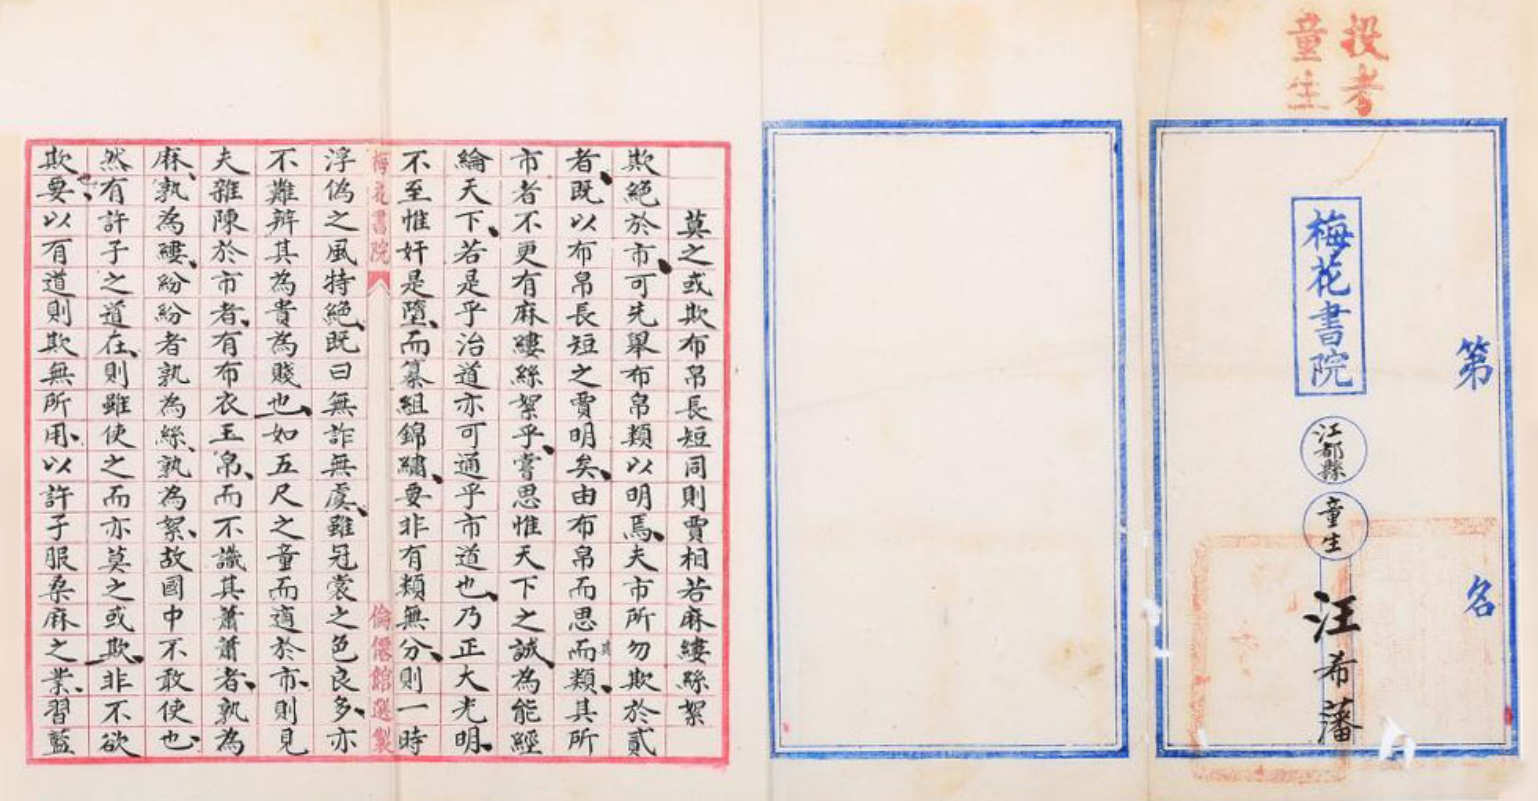 投考
童生
第 名
梅花書院
江都縣
童生
汪希藩
莫之或欺布帛長短同則賈相若麻縷絲絮
欺絕於市可先舉布帛類以明焉夫市所勿欺於貳
者既以布帛長短之賈明矣由布帛而思其而類其所
市者不更有麻縷絲絮乎嘗思惟天下之誠為能經
綸天下若是乎治道亦可通乎市道也乃正大光明
不至惟奸是墮而纂組錦繡要非有類無分則一時
梅花書院 倫僊館選製
浮偽之風特絕既曰無詐無虞雖冠裳之色良多亦
不難辨其為貴為賤也如五尺之童而適於市則見
夫雜陳於市者有布衣玉帛而不識其蕭蕭者孰為
麻孰為縷紛紛者孰為絲孰為絮故國中不敢使也
然有許子之道在則雖使之而亦莫之或欺非不欲
欺要以有道則欺無所用以許子服桑麻之業習藍